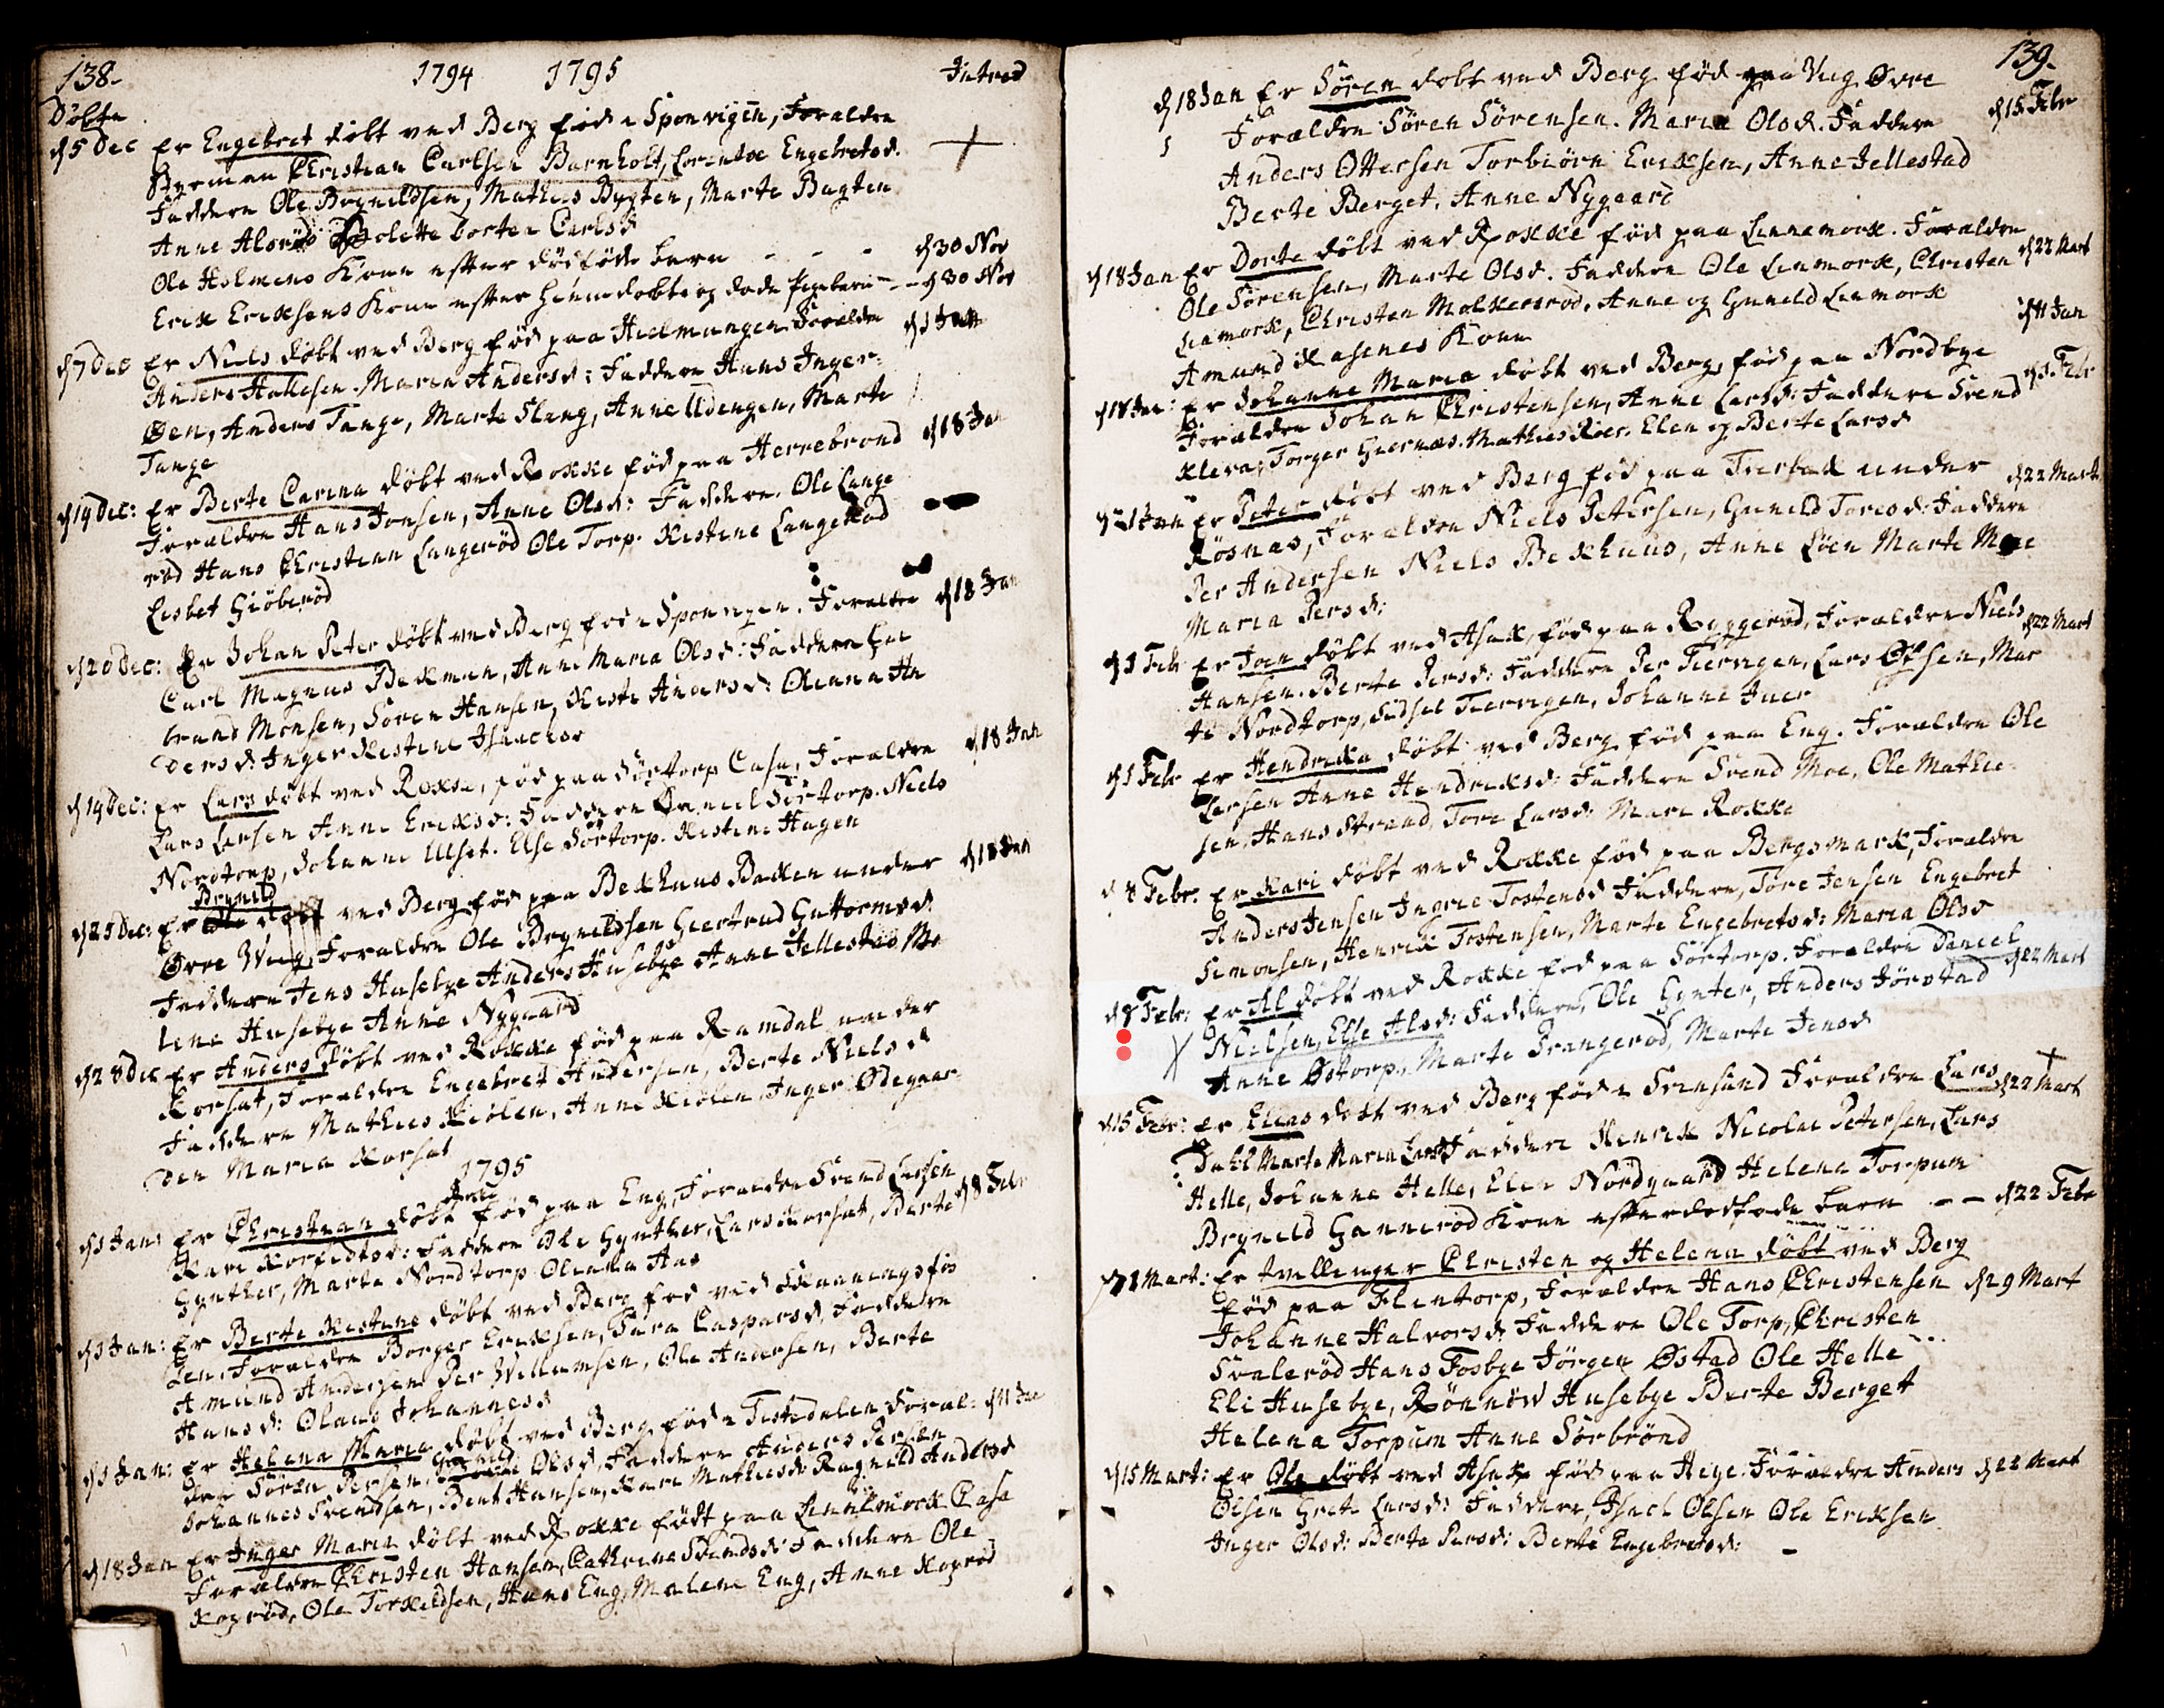 138.
1794 1795
Introd
Döbte
d 5 Dec Er Engebret döbt ved Berg fød i Sponvigen, Forældre
Styrman Christian Carlsen Barnholt, Lorentse Engebretsd.
Faddere Ole Brynildsen, Mathies Bygten, Marte Bygten
Anne Alsrød Bolette Dorte Carlsd
Ole Holmens Kone efter dödføde barn - - - d 30 Nov
Erik Eriksens Kone efter hiemdøbte og døde Pigebarn - - d 30 Nov
d 7 Dec Er Niels döbt ved Berg fød paa Hielmungen Forældre d 1 Jan
Anders Hallesen Maria Andersd: Faddere Hans Inger-
Øen, Anders Tange, Marte Stang, Anne Udengen, Marte
Tange
d 19 Dec: Er Berte Carina döbt ved Rokke fød paa Herrebrønd d 18 Jan
Forældre Hans Jonsen, Anne Olsd: Faddere. Ole Lange
rød Hans Christian Langerød Ole Torp. Kistine Langerød
Lisbet Giöberød
d 20 Dec: Er Johan Peter döbt ved Berg fød i Sponvigen. Forældre d 18 Jan
Carl Magnus Bekman, Anne Maria Olsd: Faddere
brand Monsen, Søren Hansen, Kisti Andersd: Oleana An
dersd: Inger Kistine Isaachsd
d 19 Dec: Er Lars döbt ved Rokke, fød paa Sörtorp Casa, Forældre d 18 Jan
Lars Larsen Anne Eriksd: Faddere Daniel Sörtorp. Niels
Nordtorp, Johanne Ulset. Else Sörtorp. Kistine Hagen
Brynild
d 25 Dec: Er Ole döbt ved Berg fød paa Bekhuus Bakken under d 18 Jan
Øvre Wiig, Forældre Ole Brynildsen Giertrud Guttormsd
Faddere Jens Husebye Anders Husebye Anne Jellestad Ma
lene Husebye Anne Nygaard
d 28 Dec Er Anders döbt ved Rokke fød paa Ramdal under
Korsæt, Forældre Engebret Andersen, Berte Nielsd
Faddere Mathies Kiölen, Anne Kiölen, Inger Ødegaar-
den Maria Korsæt
1795
d 1 Jan: Er Christian döbt fød paa Eng, Forældre Svend Larsen
Kari Korfidtsd: Faddere Ole Gynther, Lars Korsæt, Berte d 8 Febr
Gynther, Marte Nordtorp Oleana Aas
d 1 Jan: Er Berte Kistine döbt ved Berg fød ved Skanningsfos
Zen, Forældre Borger Eriksen, Sara Caspersd, Faddere
Amund Andersen Per Willumsen, Ole Andersen, Berte
Hansd: Olaug Johannesd
d 1 Jan: Er Helena Maria döbt ved Berg fød i Tistedalen Foræl- d 11 Jan
dre Sören Persen, Olsd, Faddere Anders Persen
Johannes Svendsen, Bent Hansen, Kari Mathiesd: Ragnild Andersd
d 18 Jan Er Inger Maria döbt ved Rokke født paa Linnemork Casa
Forældre Christen Hansen, Cathrine Svendsd: Faddere Ole
Kogerød, Ole Torkildsen, Hans Eng, Malene Eng, Anne Kogrød
139.
d 18 Jan Er Sören döbt ved Berg fød paa Viig Øvre
Forældre Søren Sörensen. Maria Olsd. Faddere d 15 Febr
Anders Ottersen Torbiörn Eriksen, Anne Jellestad
Berte Berget, Anne Nygaard
d 18 Jan Er Dorte döbt ved Rokke fød paa Linnemork. Forældre
Ole Sörensen, Marte Olsd. Faddere Ole Linmork, Christen d 22 Mart
Linmork, Christen Molkersrød, Anne og Gunild Linmork
Amund Kasenes Kone
d 11 Jan
d 18 Jan: Er Johanne Maria döbt ved Berg, fød paa Nordbye
Forældre Johan Christensen, Anne Larsd: Faddere Svend d 1 Febr
Kleva, Torger Guernæs. Mathies Röer. Elen og Berte Larsd
Er Peter döbt ved Berg fød paa under d 22 Mart
Rösnæs, Forældre Niels Petersen, Gunild Toresd: Faddere
Per Andersen Niels Bekhuus, Anne Löen Marte Moe
Maria Persd:
d 1 Febr Er Joen döbt ved Asak, fød paa Ryggerød, Forældre Niels d 22 Mart
Hansen. Berte Persd: Faddere Per Tiervigen, Lars Olsen, Mar
te Nordtorp, Sidsel Tiervigen, Johanne Iver
d 1 Febr Er Hendrika döbt ved Berg fød paa Eng. Forældre Ole
Larsen Anne Hendriksd: Faddere Svend Moe, Ole Mathie-
sen, Hans Strand, Tore Larsd: Mari Rokke
d 8 Febr. Er Kari döbt ved Rokke fød paa Bergsmark, Forældre
Anders Jensen Ingrie Tostensd Faddere, Töre Jensen Engebret
Simonsen, Henrik Tostensen, Marte Engebretsd: Maria Olsd
d 8 Febr: Er Al döbt ved Rokke fød paa Sörtorp. Forældre Daniel d 22 Mart
Nielsen, Else Alsd: Faddere, Ole Gynter, Anders Jörstad
Anne Østorp, Marte Prangerød, Marte Jensd
d 15 Febr: Er Elias döbt ved Berg fød i Svinsund Forældre Lars d 22 Mart
Dahl Marte Maria Larsd Faddere Henrik Nicolai Petersen, Lars
Helle, Johanna Helle, Elen Nordgaard Helena Torpum
Brynild Gannerød Kone efter dødfødte barn - - d 22 Febr
d 1 Mart: Er tvillinger Christen og Helena döbt ved Berg
fød paa Flintorp, Forældre Hans Christensen d 29 Mart
Johanne Halvorsd Faddere Ole Torp, Christen
Svalerød Hans Fosbye Jörgen Østad Ole Helle
Eli Husebye, Rönnöw Husebye Berte Berget
Helena Torpum Anne Sörbrönd
d 15 Mart: Er Ole döbt ved Asak fød paa Heye. Forældre Anders d 22 Mart
Olsen Grete Larsd: Faddere, Isach Olsen Ole Eriksen
Inger Olsd: Berte Persd: Berte Engebretsd: